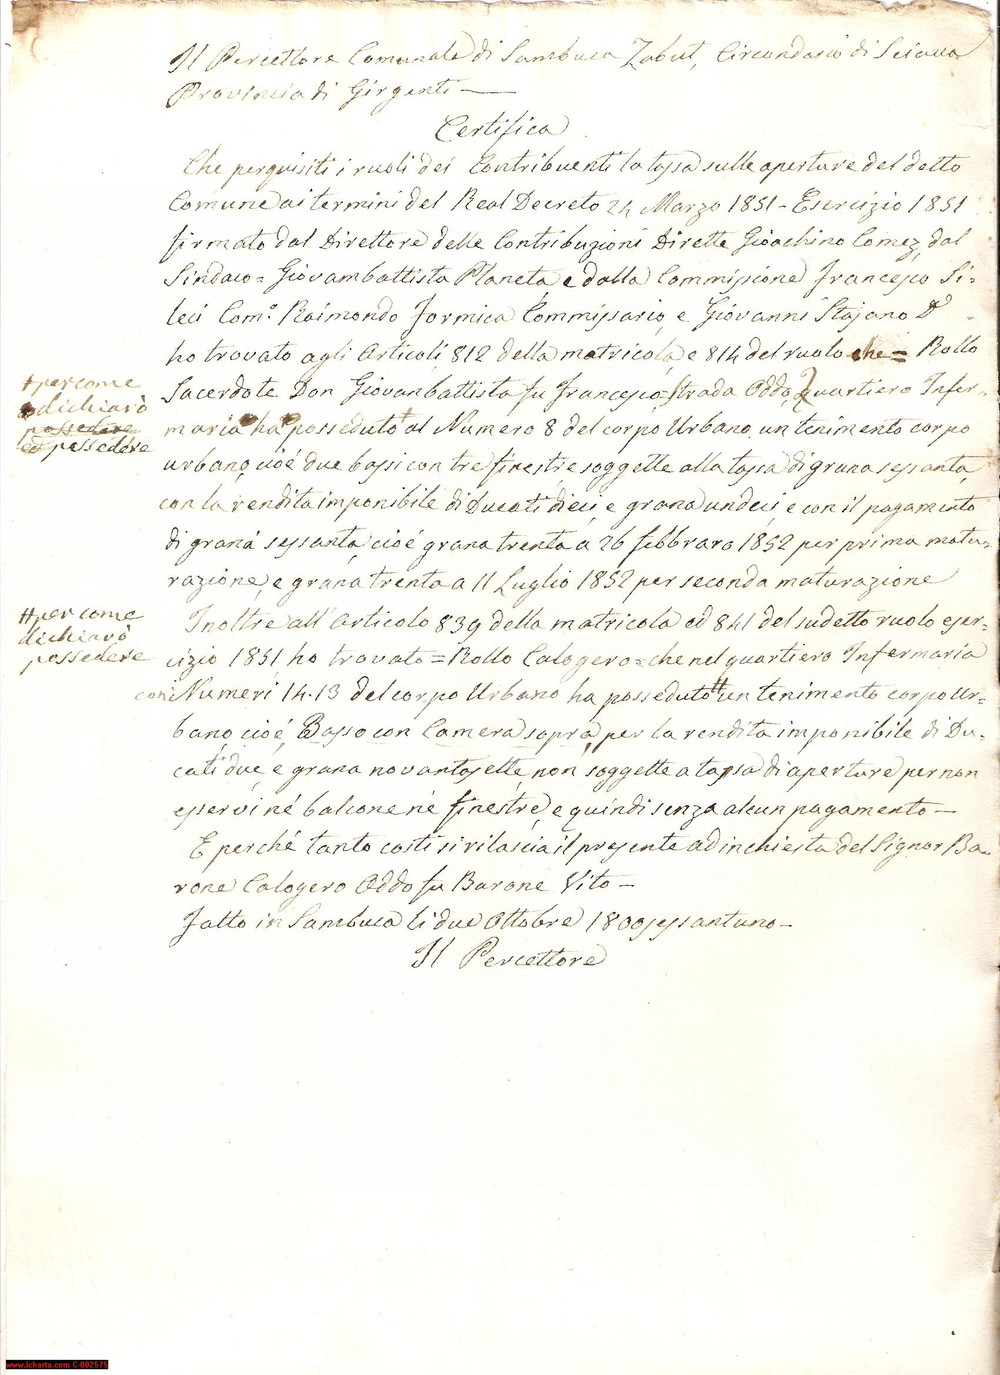 Il Percettore Comunale di Sambuca Zabut, Circondario di Sciacca
Provincia di Girgenti —
Certifica
Che perquisiti i ruoli dei Contribuenti la tassa sulle aperture del detto
Comune ai termini del Real Decreto 24 Marzo 1851 - Esercizio 1851
firmato dal Direttore delle Contribuzioni Dirette Gioachino Comez, dal
Sindaco = Giovambattista Planeta, e dalla Commissione Francesco Si=
leci Com.º Raimondo Formica Commissario, e Giovanni Stajano Dº
ho trovato agli Articoli, 812 della matricola, e 814 del ruolo che = Rollo
Sacerdote Don Giovanbattista fu Francesco, strada Oddo, quartiero Infer=
maria ha posseduto # al Numero 8 del corpo Urbano un tenimento corpo
urbano, cioè due bassi con tre finestre soggette alla tassa di grana sessanta,
con la rendita imponibile di Ducati dieci, e grana undeci, e con il pagamento
di grana sessanta, cioè grana trenta a 26 febbraro 1852 per prima matu=
razione, e grana trenta a 11 Luglio 1852 per seconda maturazione
# per come
dichiarò
possedere
possedere
Inoltre all' Articolo 839 della matricola ed 841 del sudetto ruolo eser=
cizio 1851 ho trovato = Rollo Calogero = che nel quartiero Infermaria
coi Numeri 14.13 del corpo Urbano ha posseduto # un tenimento corpo Ur=
bano, cioè, Basso con Camera sopra, per la rendita imponibile di Du=
cati due, e grana novantasette, non soggette a tassa di aperture per non
esservi né balcone né finestre, e quindi senza alcun pagamento —
# per come
dichiarò
possedere
E perché tanto costi si rilascia il presente ad inchiesta del Signor Ba=
rone Calogero Oddo fu Barone Vito —
Fatto in Sambuca li due Ottobre 1800sessantuno —
Il Percettore
www.lcharta.com C-002575